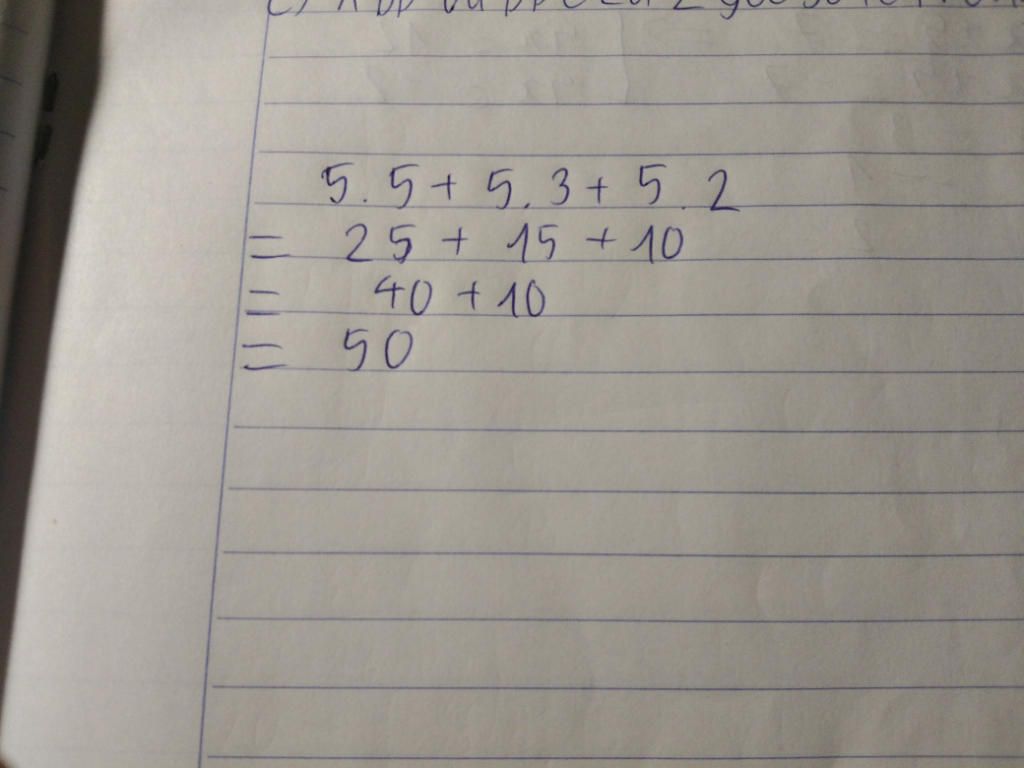 5.5 + 5.3 + 5.2
= 25 + 15 + 10
= 40 + 10
= 50